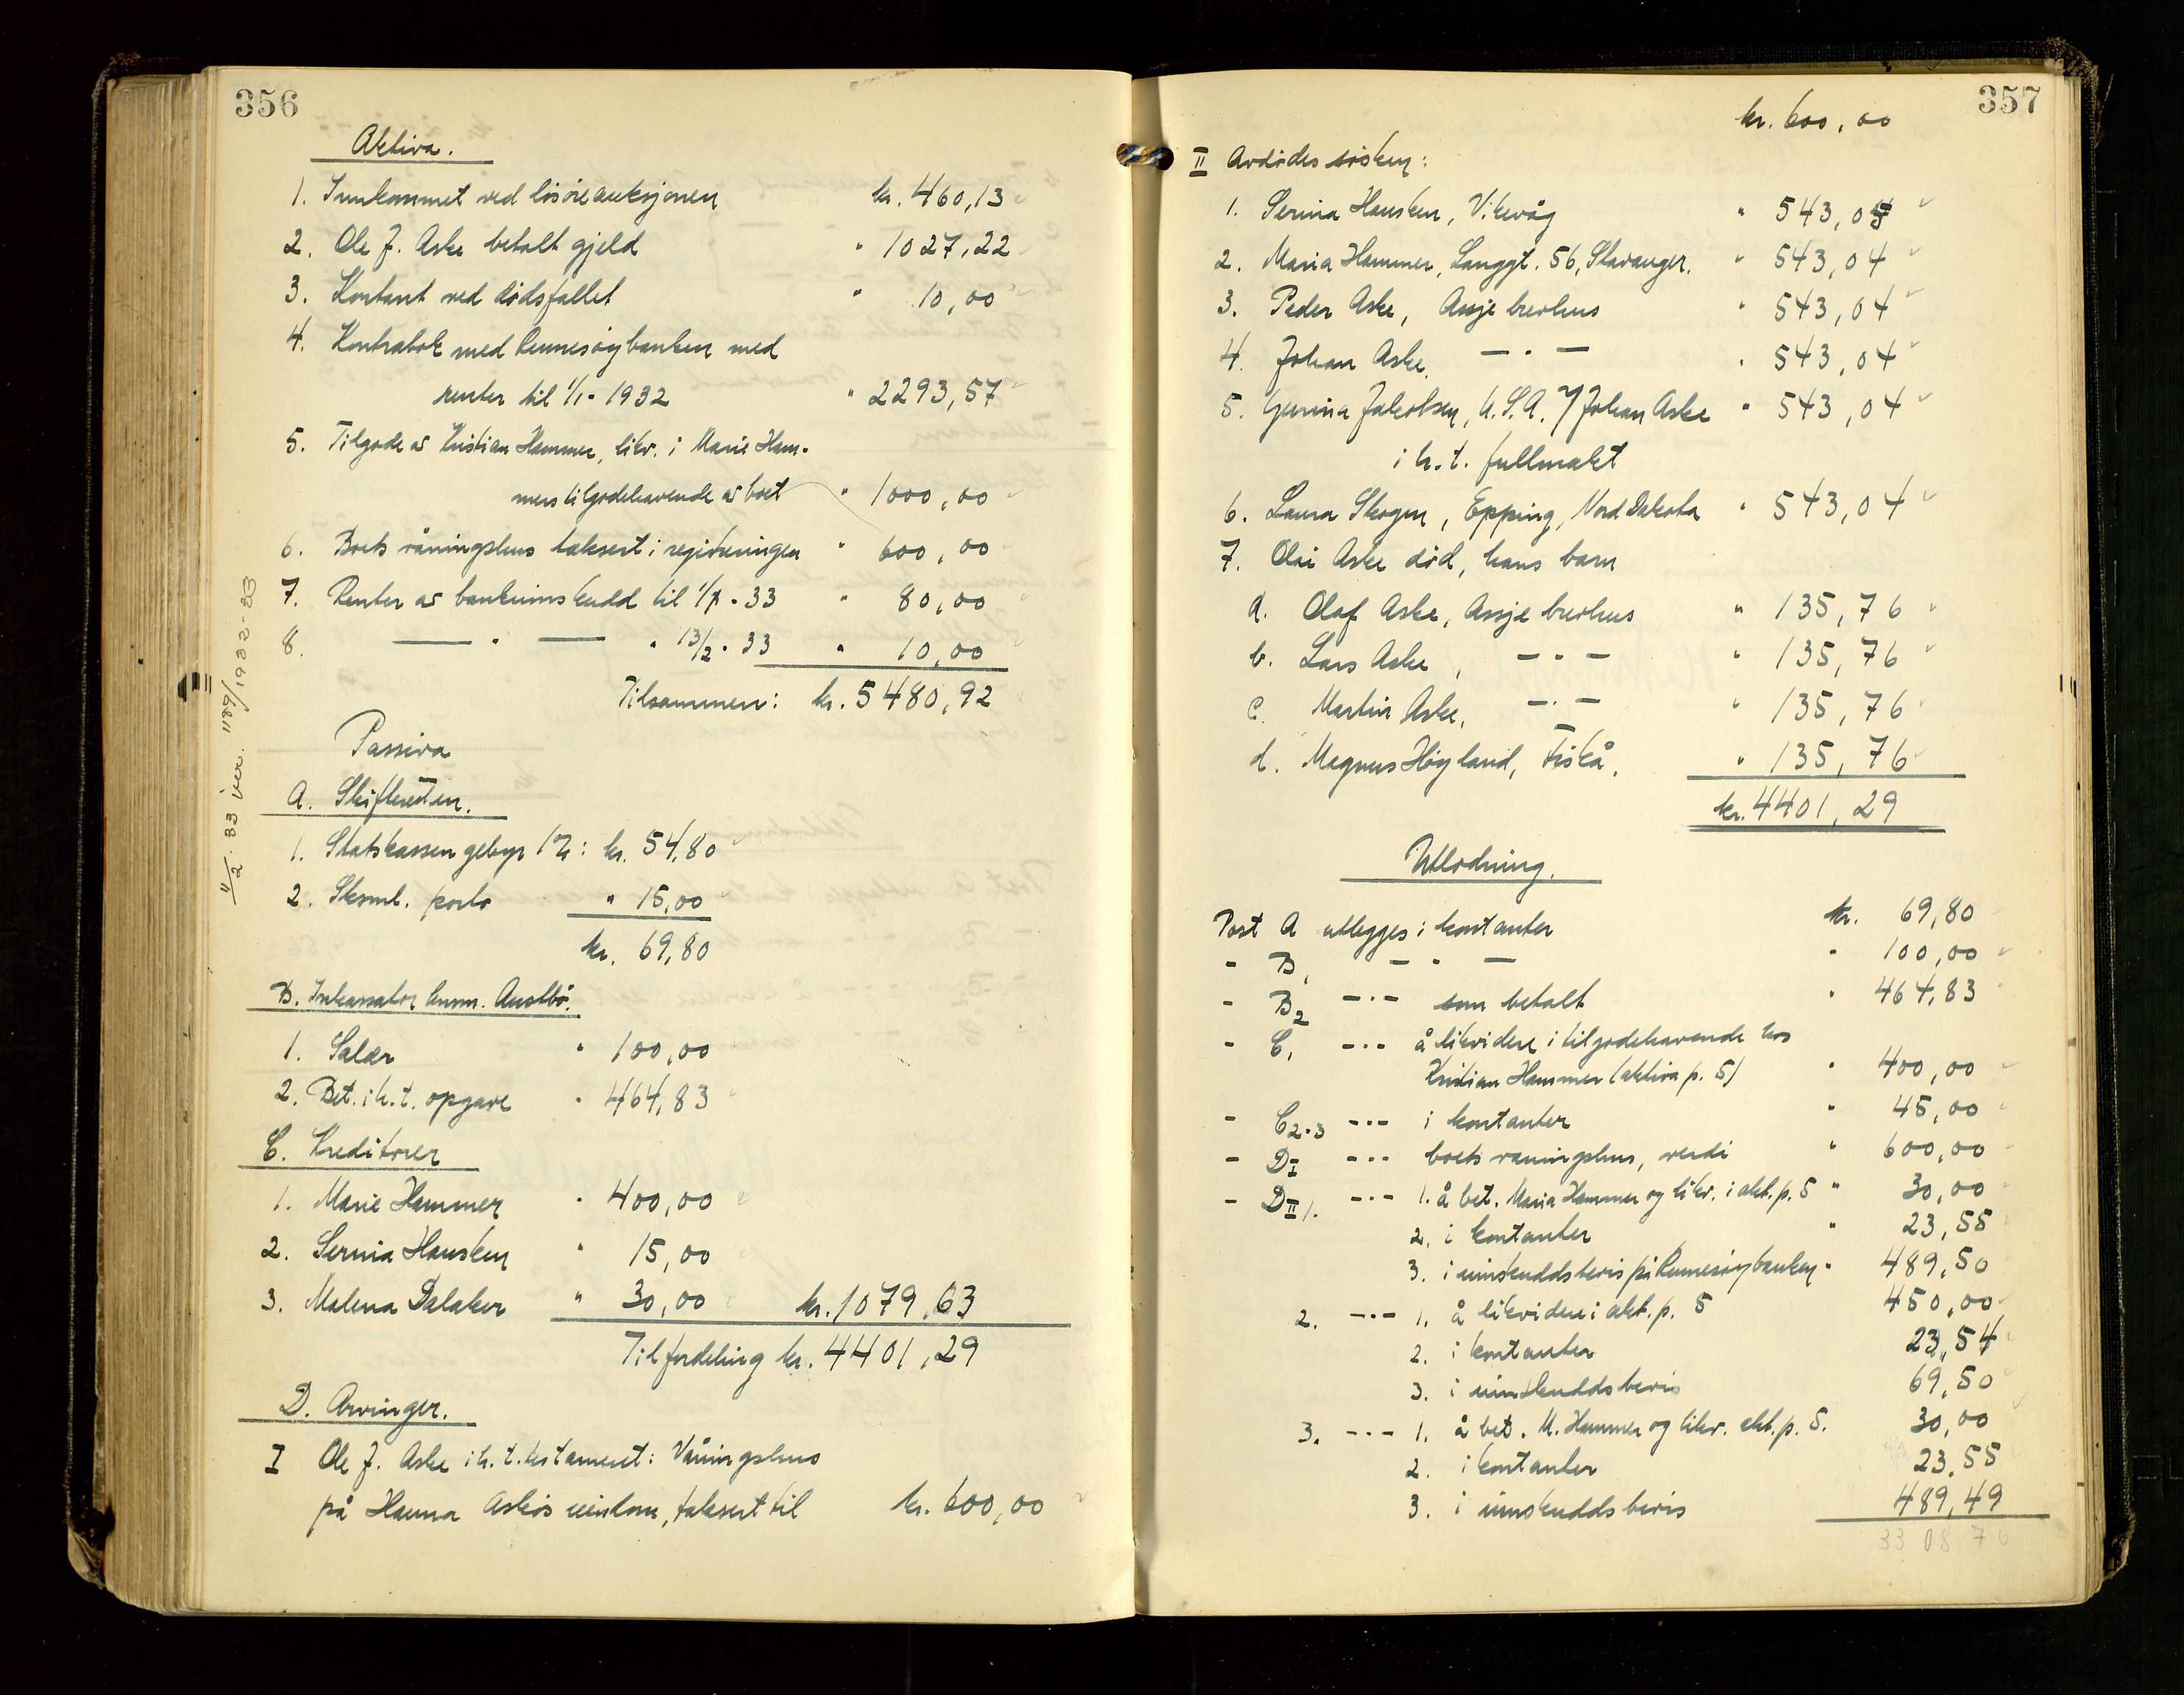 356
Aktiva.
1. Innkommet ved lösöreauksjonen kr. 460,13
2. Ole J. Aske betalt gjeld " 1027,22
3. Kontant ved dödsfallet " 10,00
4. Kontrabok med Rennesöybanken med
renter til 1/1-1932 " 2293,57
5. Tilgode av Kristian Hammer, likv. i Marie Ham-
mers tilgodehavende av boet " 1000,00
6. Boets våningshus taksert i registreringen " 600,00
7. Renter av bankinnskudd til 1/1-33 " 80,00
8. — " — " 13/2-33 " 10,00
Tilsammen: kr. 5480,92
Passiva
A. Skifteretten.
1. Statskassen gebyr 1%: kr. 54,80
2. Skrml. porto " 15,00
kr. 69,80
B. Inkassator Austbö.
1. Salær " 100,00
2. Bet. i h. t. opgave " 464,83
C. Kreditorer
1. Marie Hammer " 400,00
2. Serina Hausken " 15,00
3. Malena Dalaker " 30,00 kr. 1079,63
Til fordeling kr. 4401,29
D. Arvinger.
I Ole J. Aske i h. t. testament: Våningshus
på Hanna Askes eiendom, taksert til kr. 600,00
1189/1932-33
357
kr. 600,00
II Avdödes sösken:
1. Serina Hausken, Vikevåg " 543,05
2. Maria Hammer, Langgt. 56, Stavanger. " 543,04
3. Peder Aske, Assjebuerhus " 543,04
4. Johan Aske, — " — " 543,04
5. Gurina Jakobsen, U.S.A. v/ Johan Aske " 543,04
i h. t. fullmakt
6. Laura Skogen, Epping, Nord Dakota " 543,04
7. Olai Aske död, hans barn
a. Olaf Aske, Assjebuerhus " 135,76
b. Lars Aske, — " — " 135,76
c. Martin Aske, — " — " 135,76
d. Magnus Höyland, Fiskå, " 135,76
kr. 4401,29
Utlodning.
Post A utlegges i kontanter kr. 69,80
- B1 — " — " 100,00
- B2 — " — som betalt " 464,83
- C1 — " — å likvidere i tilgodehavende hos
Kristian Hammer (aktiva p. 5) " 400,00
- C2-3 — " — i kontanter " 45,00
- DI — " — boets våningshus, verdi " 600,00
- DII 1. — " — 1. å bet. Maria Hammer og likv. i akt. p. 5 " 30,00
2. i kontanter " 23,55
3. i innskuddsbevis på Rennesöybanken " 489,50
2. — " — 1. å likvidere i akt. p. 5 450,00
2. i kontanter 23,54
3. i innskuddsbevis 69,50
3. — " — 1. å bet. M. Hammer og likv. akt. p. 5. 30,00
2. i kontanter 23,55
3. i innskuddsbevis 489,49
3308 76